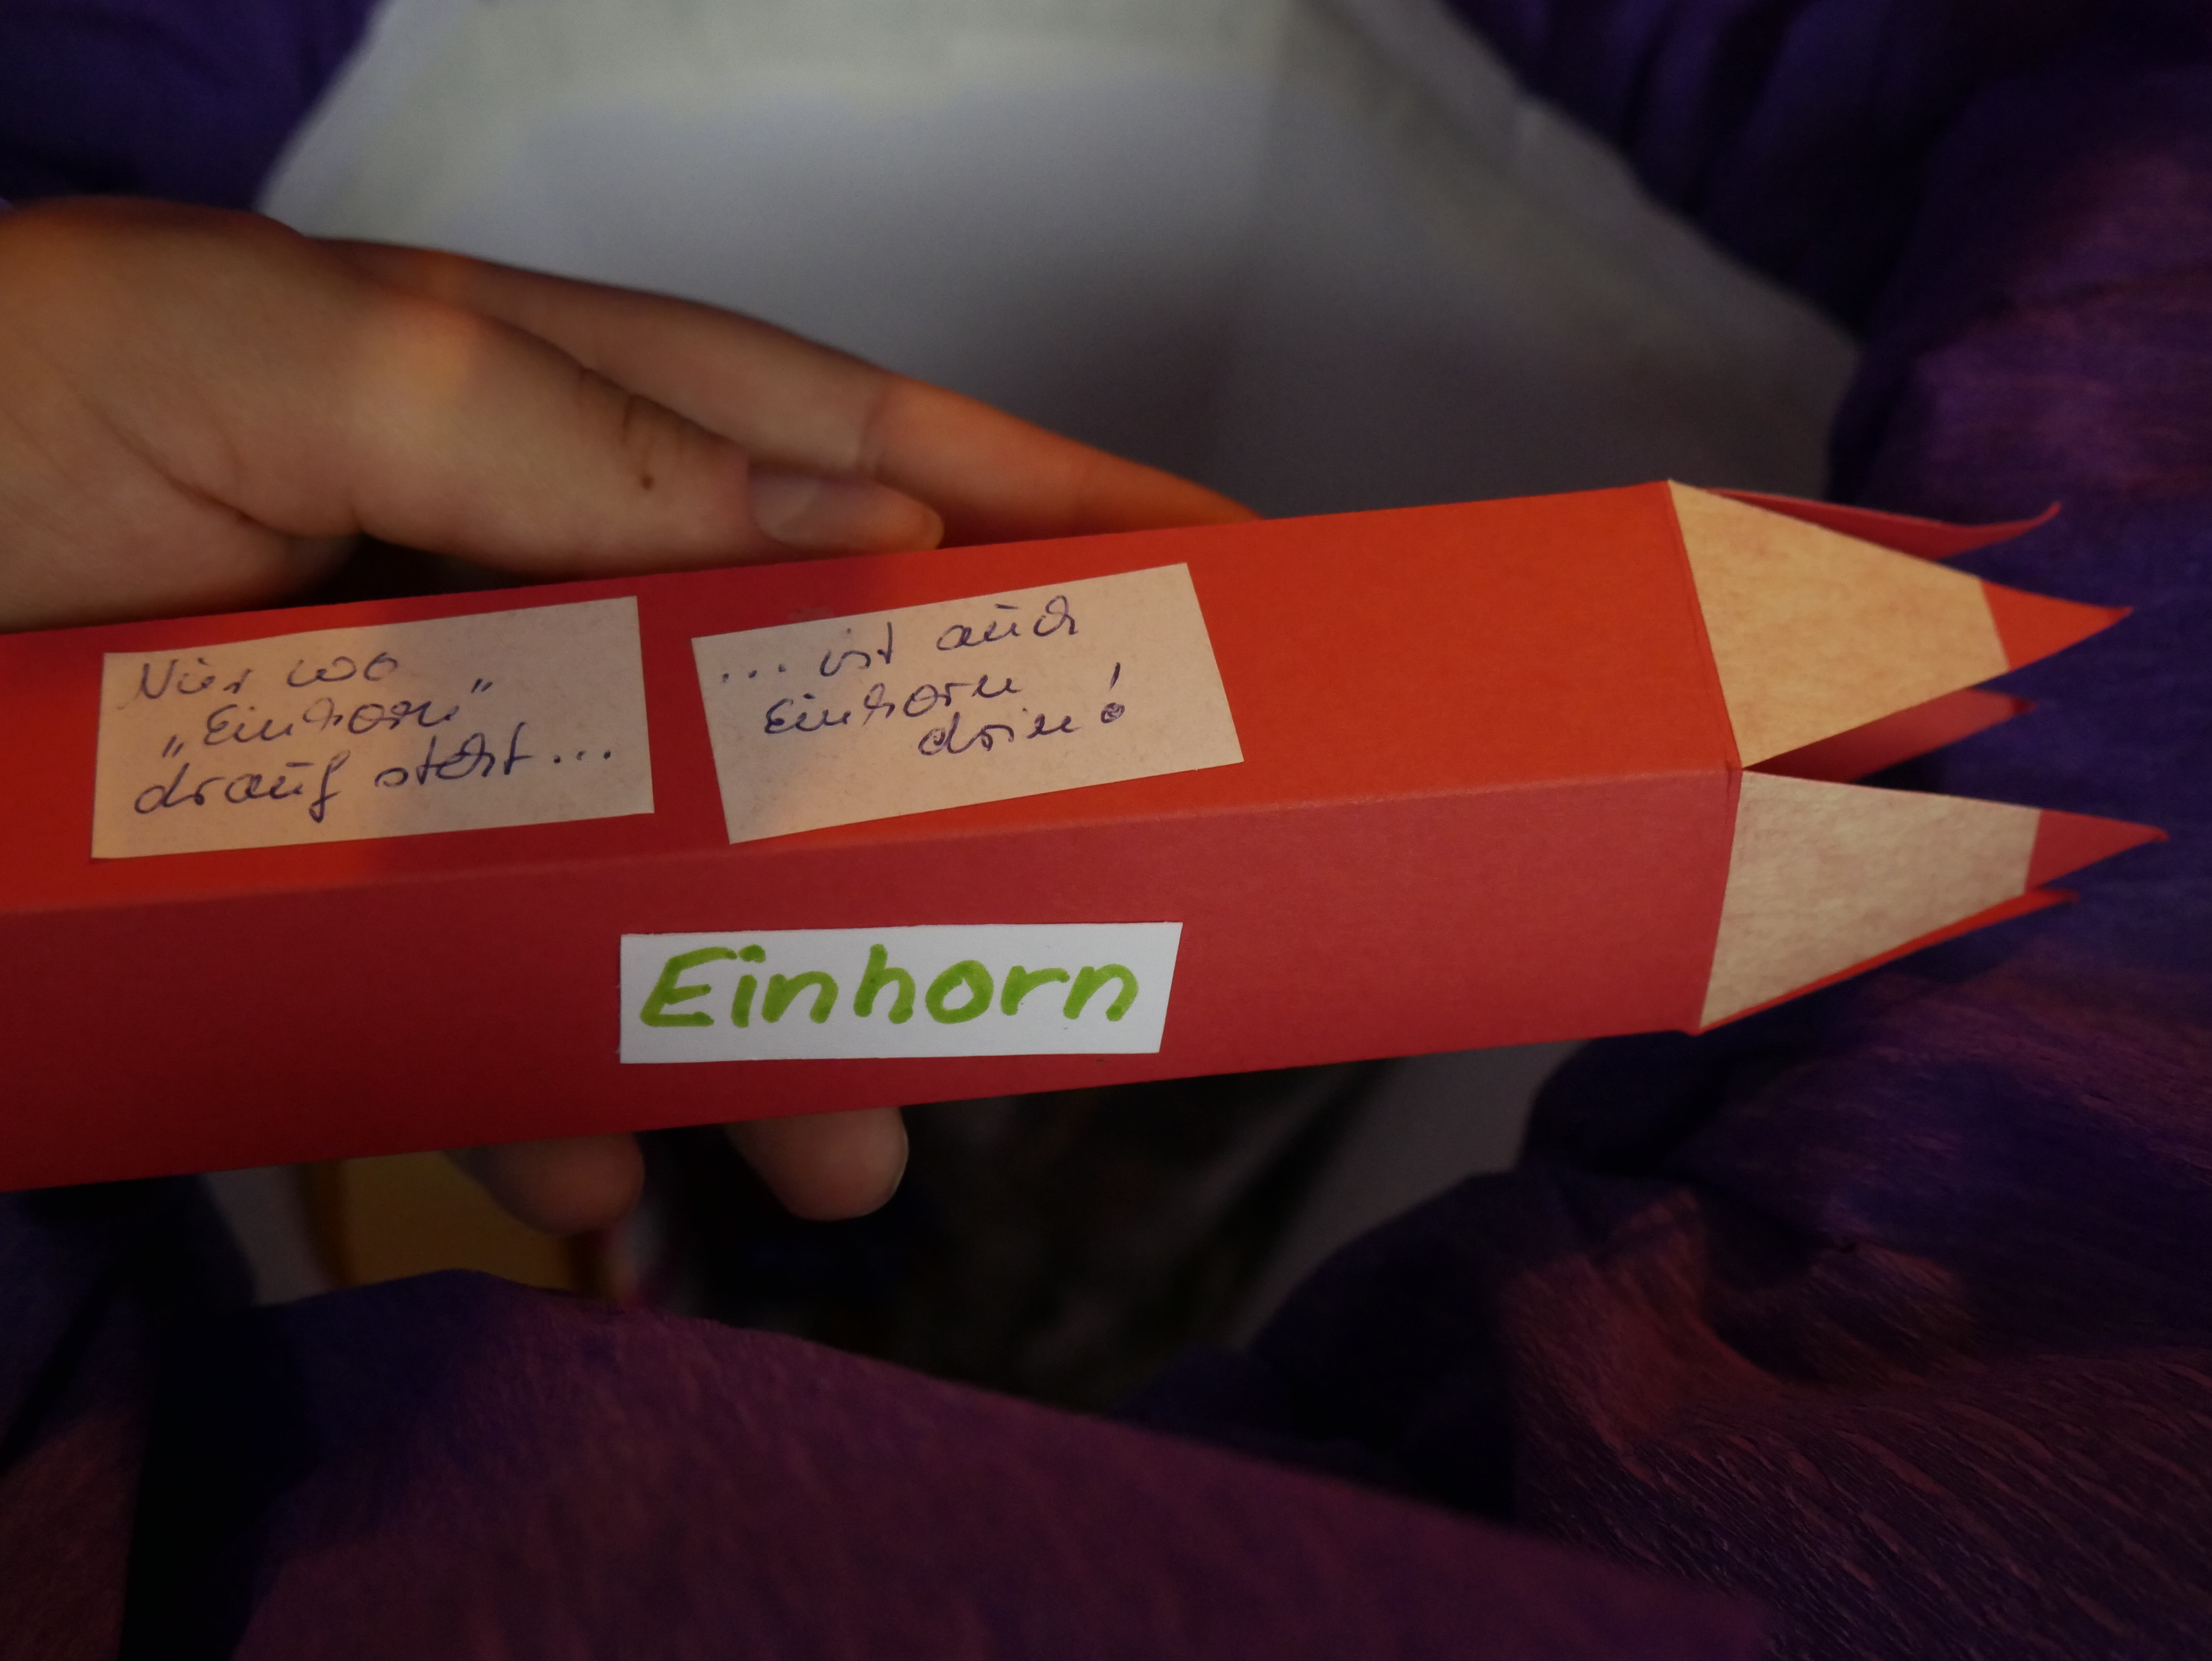 Nur wo
„Einhorn“
drauf steht...
... ist auch
Einhorn
drin!
Einhorn